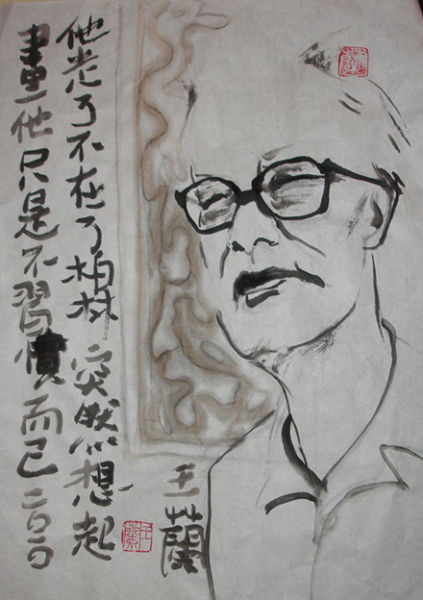 他老了不在了柏林突然想起
畫他只是不習慣而已
王蘭